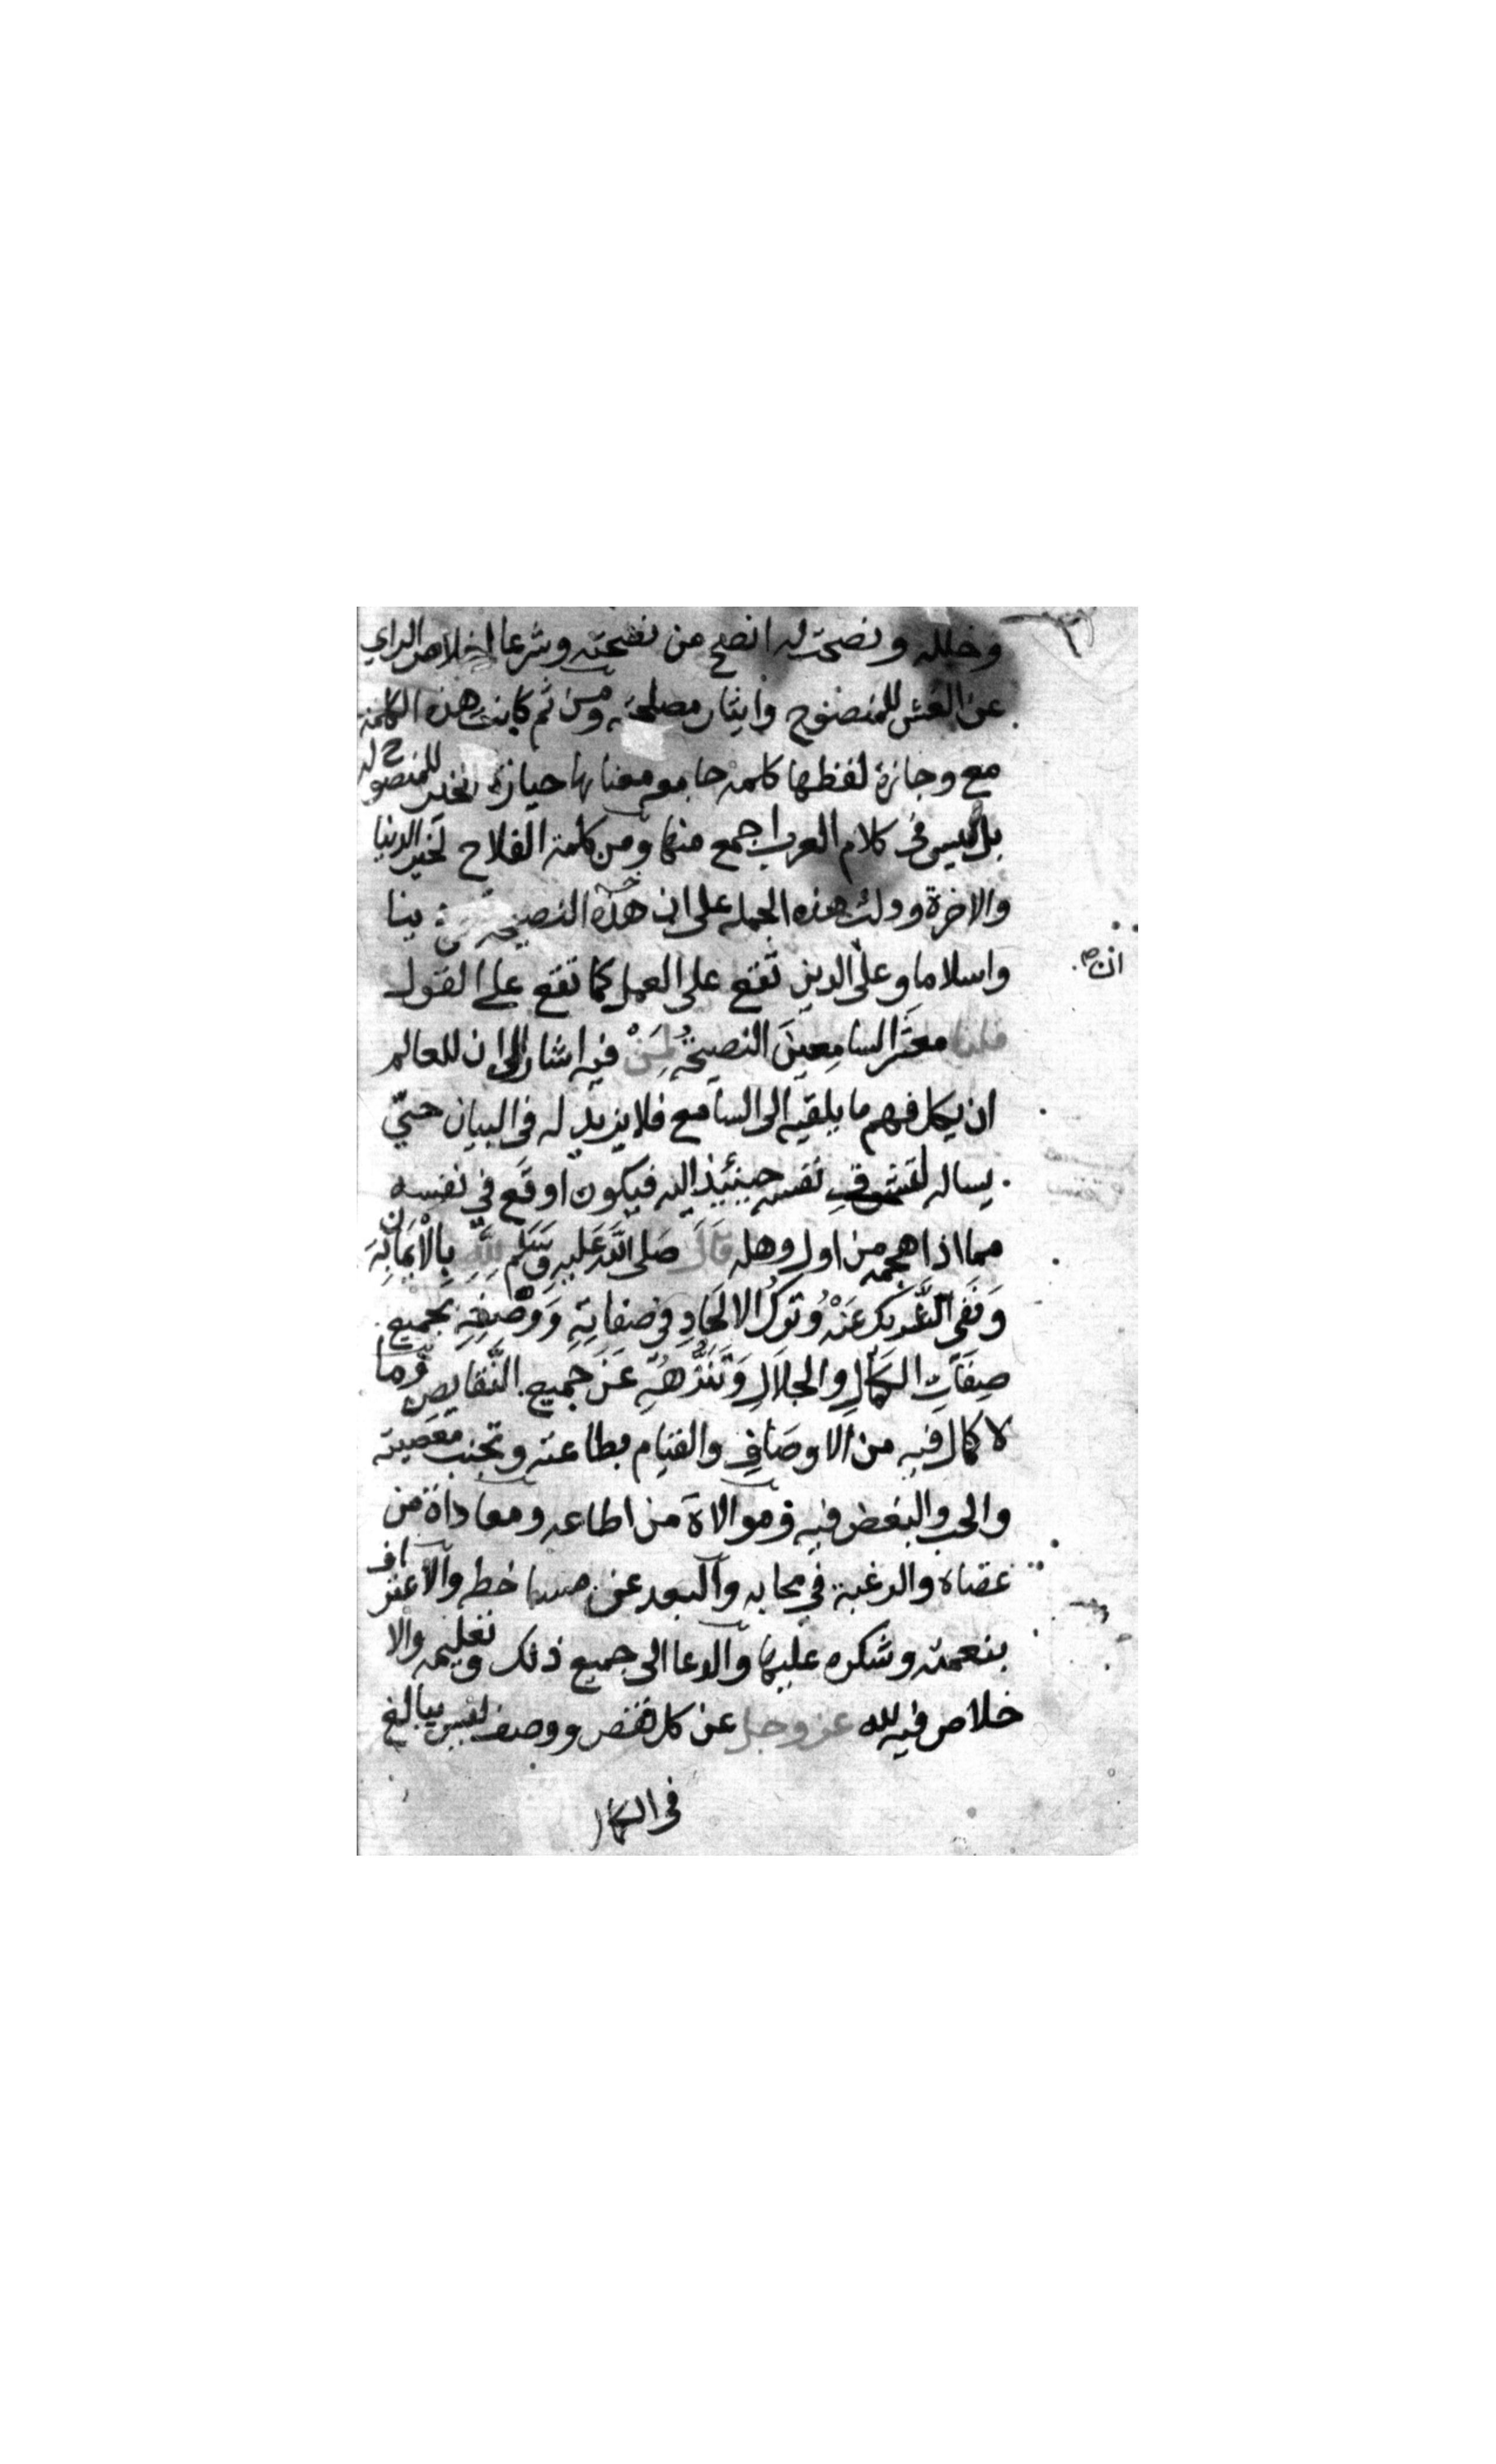 وخلله ونصحت له انصح من نصحته وشرعا اخلاص الراي
عن الغش للمنصوح وايثار مصلحته ومن ثم كانت هذه الكلمة
مع وجازة لفظها كلمة جامعه معناها حيازة الخير للمنصوح له
بل ليس في كلام العرب اجمع منها ومن كلمة الفلاح لخير الدنيا
والاخرة ودلت هذه الجمله على ان هذه النصيحة
ان صح
واسلاما وعلى الدين تقع على العمل كما تقع على القول
قلنا معشر السامعين النصيحة لمن فيه اشارة الى ان للعالم
ان يكل فهم ما يلقيه الى السامع فلا يزيد له في البيان حتي
يساله لتشوق نفسه حينئذ اليه فيكون اوقع في نفسه
مما اذا هجمه من اول وهله قال صلى الله عليه وسلم لله بالايمان به
ونفي الشريك عنه وترك الالحاد في صفاته ووصفه بجميع
صفات الكمال والجلال وتنزهه عن جميع النقايص وما
لا كمال فيه من الاوصاف والقيام بطاعته وتجنب معصيته
والحب والبغض فيه وموالاة من اطاعه ومعاداة من
عصاه والرغبة في محابه والبعد عن مساخطه والاعتراف
بنعمته وشكره عليها والدعا الى جميع ذلك وتعليمه والا
خلاص فيه لله عز وجل عن كل نقص ووصف ليس ببالغ
في الكمال